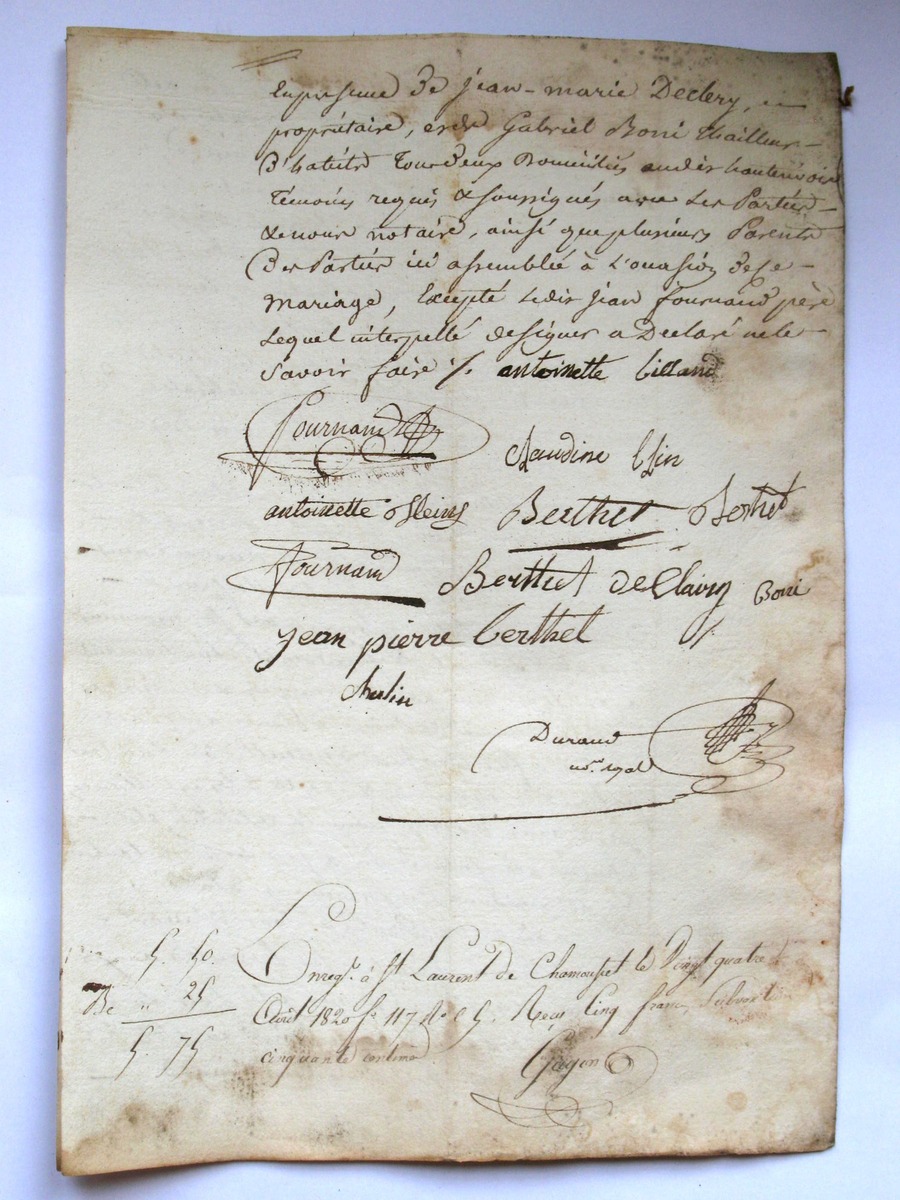 En presence De jean-marie Declery,
propriétaire, et de Gabriel Boni thailleur
D'habits tous Deux Domiciliés audit hauterivoire
Témoins requis & soussignés avec Les Parties
& nous notaire, ainsi que plusieurs Parents
Des Parties ici assemblés à L'ocasion de ce
Mariage, Excepté Ledit jean fournand père
Lequel interpellé de signer a Declaré ne le
Savoir faire ./. antoinette billand
fournand
Claudine
antoinette Berthet Berhet
fournand Berthet deClairy Boni
jean pierre berthet
Durand
no.re royal
5. 50.
De " 25
5. 75
Enreg.é à St Laurent de Chamousset le Vingt quatre
Août 1820 fo 117 Ro C 5. Reçu Cinq francs
cinquante centimes
Gagon